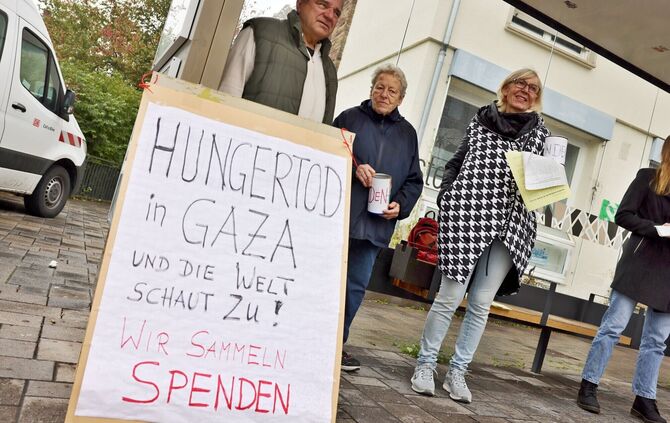 HUNGERTOD
in GAZA
UND DIE WELT
SCHAUT ZU!
WIR SAMMELN
SPENDEN
DEN